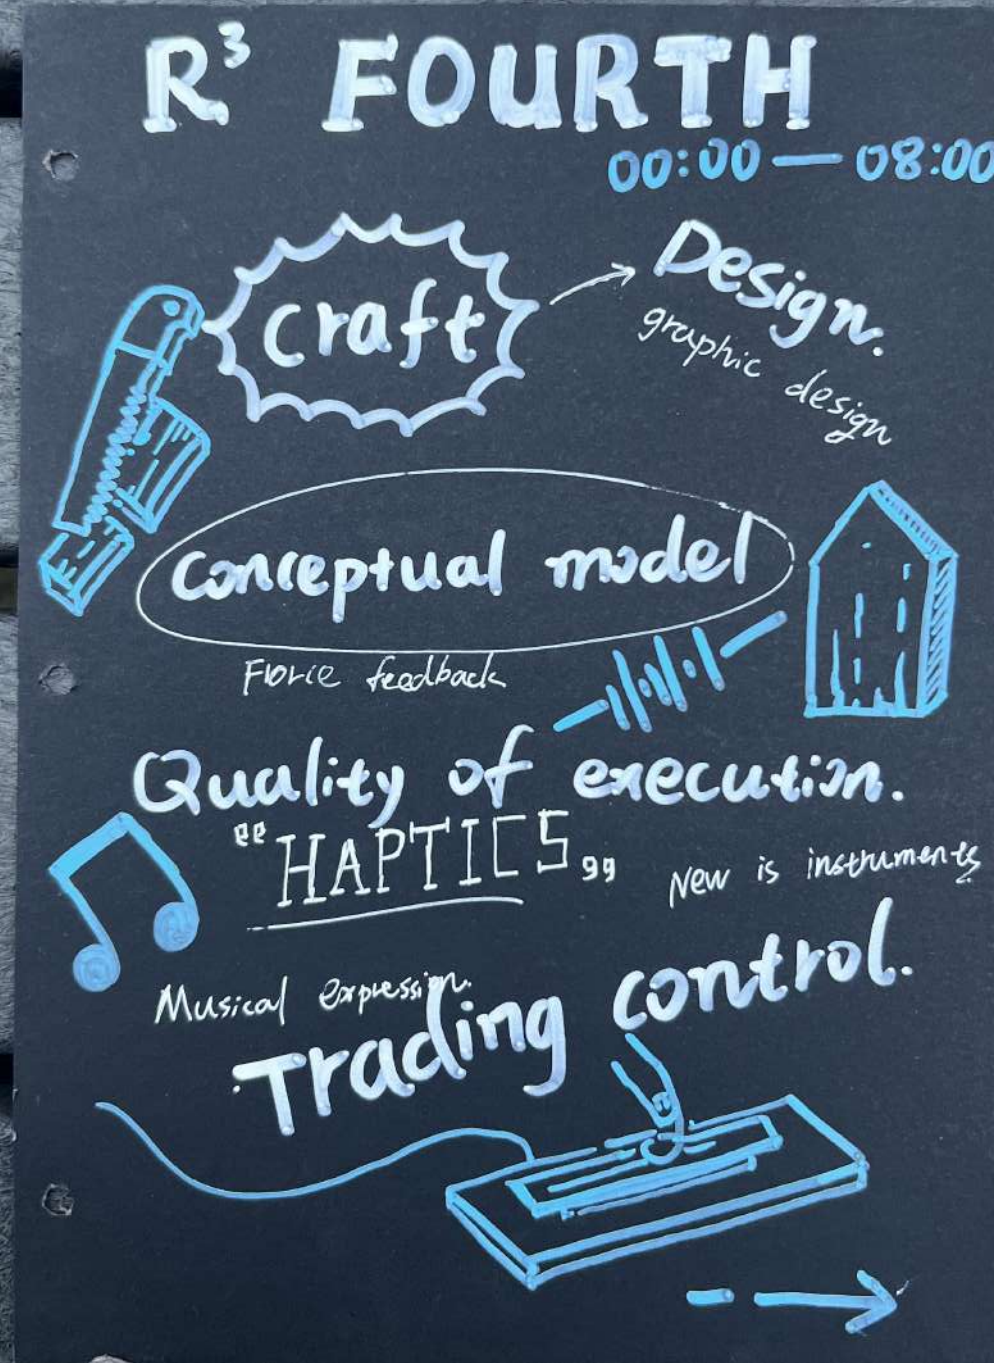 R³ FOURTH
00:00 — 08:00
craft → Design.
graphic design
conceptual model
Florie feedback
Quality of execution.
"HAPTICS"
New is instruments
Musical expression.
Trading control.